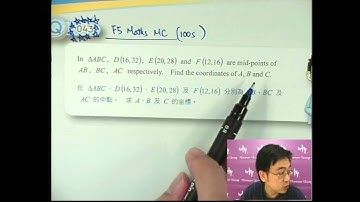 Q 043 F5 Maths MC (100s)
In ΔABC, D(16,32), E(20,28) and F(12,16) are mid-points of
AB, BC, AC respectively. Find the coordinates of A, B and C.
在 ΔABC，D(16,32)、E(20,28) 及 F(12,16) 分別為 、BC 及
AC 的中點。 求 A、B 及 C 的坐標。